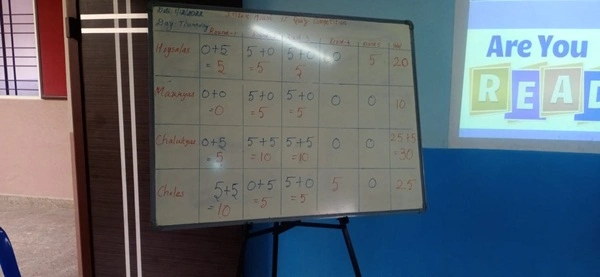 Day: Thursday
Hoysalas 0+5 5+0 5+0 0 5 20
=5 =5 5
Mauryas 0+0 5+0 5+0 0 0 10
=0 =5 =5
Chalukyas 0+5 5+5 5+5 0 0 25+5
=5 =10 =10 =30
Cholas 5+5 0+5 5+0 5 0 25
=10 =5 =5
Are You
READ